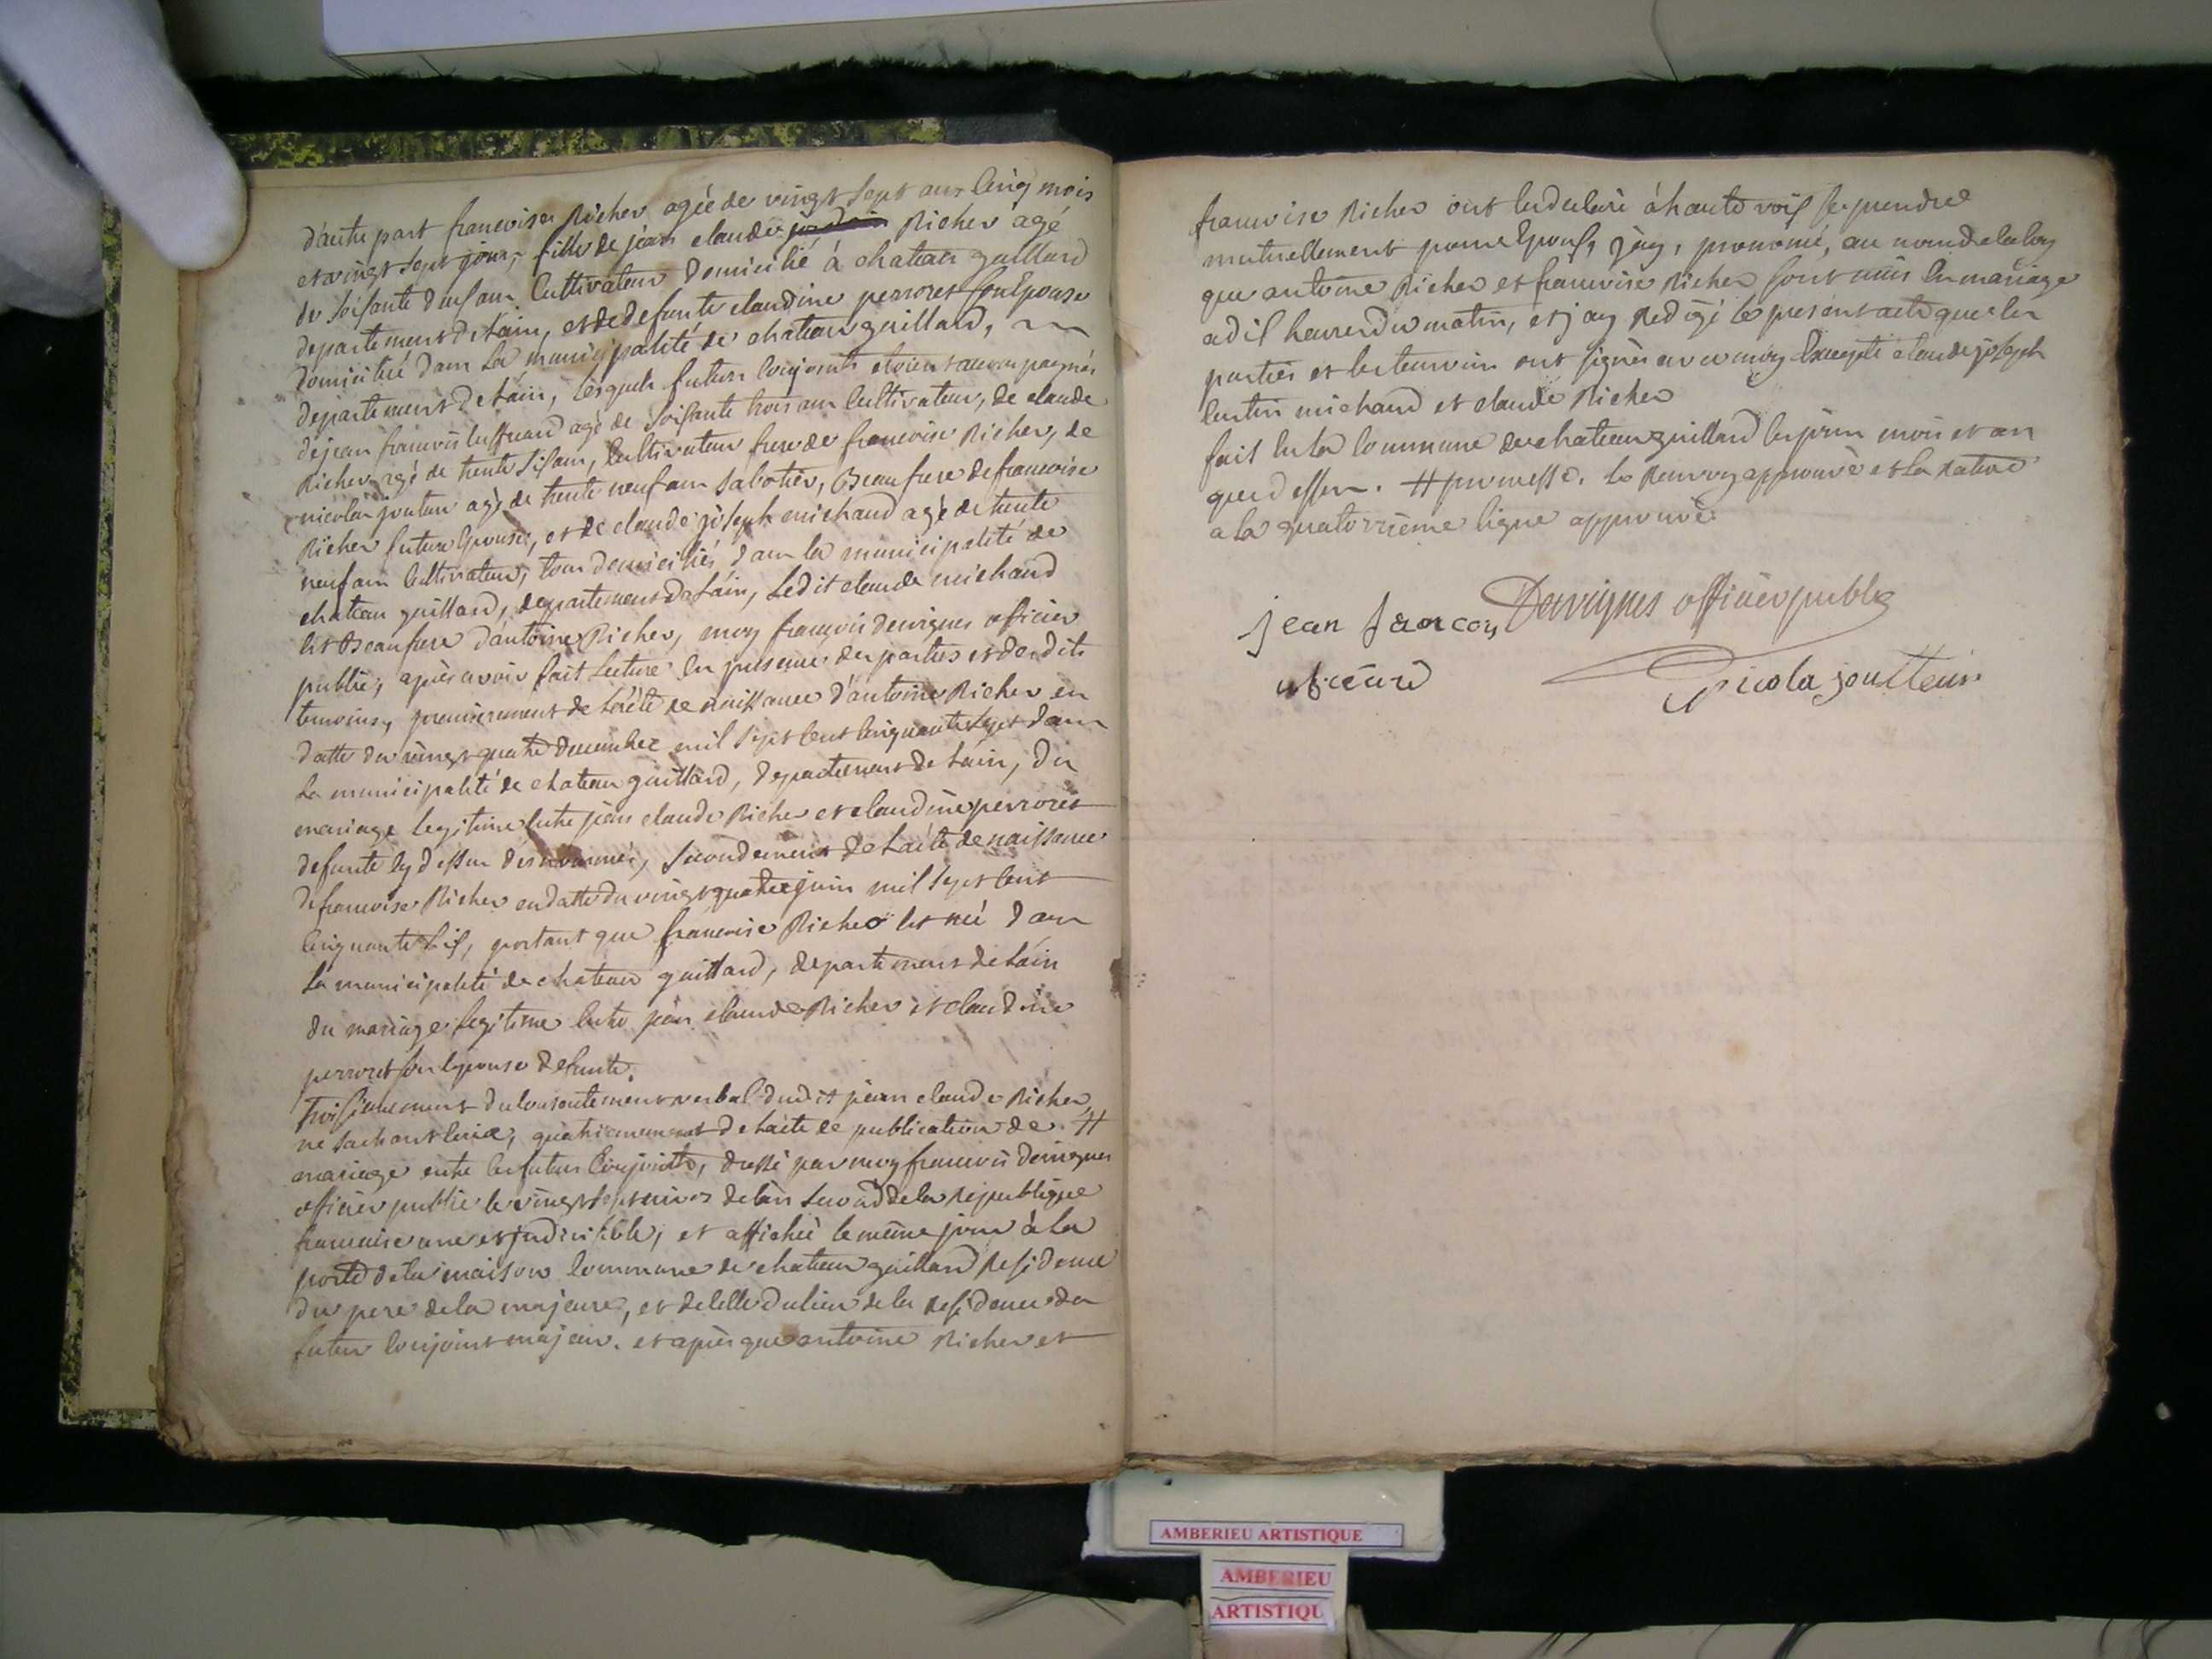 d'autre part francoise Richer agée de vingt sept ans cinq mois
et vingt sept jours, fille de jean claude Richer agé
de soisante neuf ans cultivateur domicilié à chateau gaillard
departement de Lain, et de defunte claudine perroret son Epouse
domicilié dans La municipalité de chateau gaillard,
departement de Lain, lesquels futurs conjoints etoient accompagnés
de jean francois agé de soisante trois ans cultivateur, de claude
Richer agé de trente sis ans, cultivateur frere de francoise Richer, de
nicolas joutteur agé de trente neuf ans sabotier, Beaufrere de francoise
Richer future Epouse, et de claude joseph michaud agé de trente
neuf ans cultivateur, tous domiciliés dans la municipalité de
chateau gaillard, departement de Lain, Ledit claude michaud
est Beaufrere d'antoine Richer, moy françois dervignes officier
public, après avoir fait Lecture en presence des parties et desdits
temoins, premierement de Lacte de naissance d'antoine Richer en
datte du vingt quatre decembre mil sept cent cinquante sept dans
La municipalité de chateau gaillard, departement de Lain, du
mariage legitime entre jean claude Richer et claudine perroret
defunte cy dessus denommés, secondement de Lacte de naissance
de francoise Richer en datte du vingt quatre juin mil sept cent
cinquante sis, portant que francoise Richer est née dans
La municipalité de chateau gaillard, departement de Lain
du mariage legitime entre jean claude Richer et claudine
perroret son epouse defunte.
Troisiemement du consentement verbal dudit jean claude Richer
ne sachant ecrire, quatriemement de Lacte de publication de #
mariage entre les futurs Conjoints, dressé par moy francois dervignes
officier public le vingt sept nivos de lan second de la Republique
francaise une et indivisible, et affichée le même jour à la
porte de la maison commune de chateau gaillard Residence
du pere de la majeure, et de celle du lieu de la Residence du
futur conjoint majeur. et après que antoine Richer et
francoise Richer ont eu declaré à haute vois se prendre
mutuellement pour Epous, j'ay, prononcé, au nom de la loy
que antoine Richer et francoise Richer sont unis en mariage
a dis heures du matin, et j'ay Redigé le present acte que les
parties et les temoins ont signés avec moy Excepté claude joseph
michaud et claude Richer
fait en la commune de chateau gaillard les jour mois et an
que dessus. # promesse. Le Renvoy approuvé et la Rature
a la quatorzieme ligne approuvé
jean francoy Dervignes officier public
Nicola joutteur